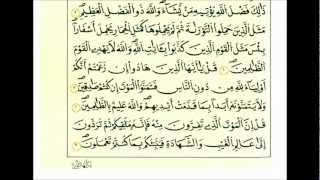 ذَٰلِكَ فَضْلُ ٱللَّهِ يُؤْتِيهِ مَن يَشَآءُ وَٱللَّهُ ذُو ٱلْفَضْلِ ٱلْعَظِيمِ
مَثَلُ ٱلَّذِينَ حُمِّلُوا۟ ٱلتَّوْرَىٰةَ ثُمَّ لَمْ يَحْمِلُوهَا كَمَثَلِ ٱلْحِمَارِ يَحْمِلُ أَسْفَارًۢا
بِئْسَ مَثَلُ ٱلْقَوْمِ ٱلَّذِينَ كَذَّبُوا۟ بِـَٔايَٰتِ ٱللَّهِ وَٱللَّهُ لَا يَهْدِى ٱلْقَوْمَ
ٱلظَّٰلِمِينَ قُلْ يَٰٓأَيُّهَا ٱلَّذِينَ هَادُوٓا۟ إِن زَعَمْتُمْ أَنَّكُمْ
أَوْلِيَآءُ لِلَّهِ مِن دُونِ ٱلنَّاسِ فَتَمَنَّوُا۟ ٱلْمَوْتَ إِن كُنتُمْ صَٰدِقِينَ
وَلَا يَتَمَنَّوْنَهُۥٓ أَبَدًۢا بِمَا قَدَّمَتْ أَيْدِيهِمْ وَٱللَّهُ عَلِيمٌۢ بِٱلظَّٰلِمِينَ
قُلْ إِنَّ ٱلْمَوْتَ ٱلَّذِى تَفِرُّونَ مِنْهُ فَإِنَّهُۥ مُلَٰقِيكُمْ ثُمَّ تُرَدُّونَ
إِلَىٰ عَٰلِمِ ٱلْغَيْبِ وَٱلشَّهَٰدَةِ فَيُنَبِّئُكُم بِمَا كُنتُمْ تَعْمَلُونَ